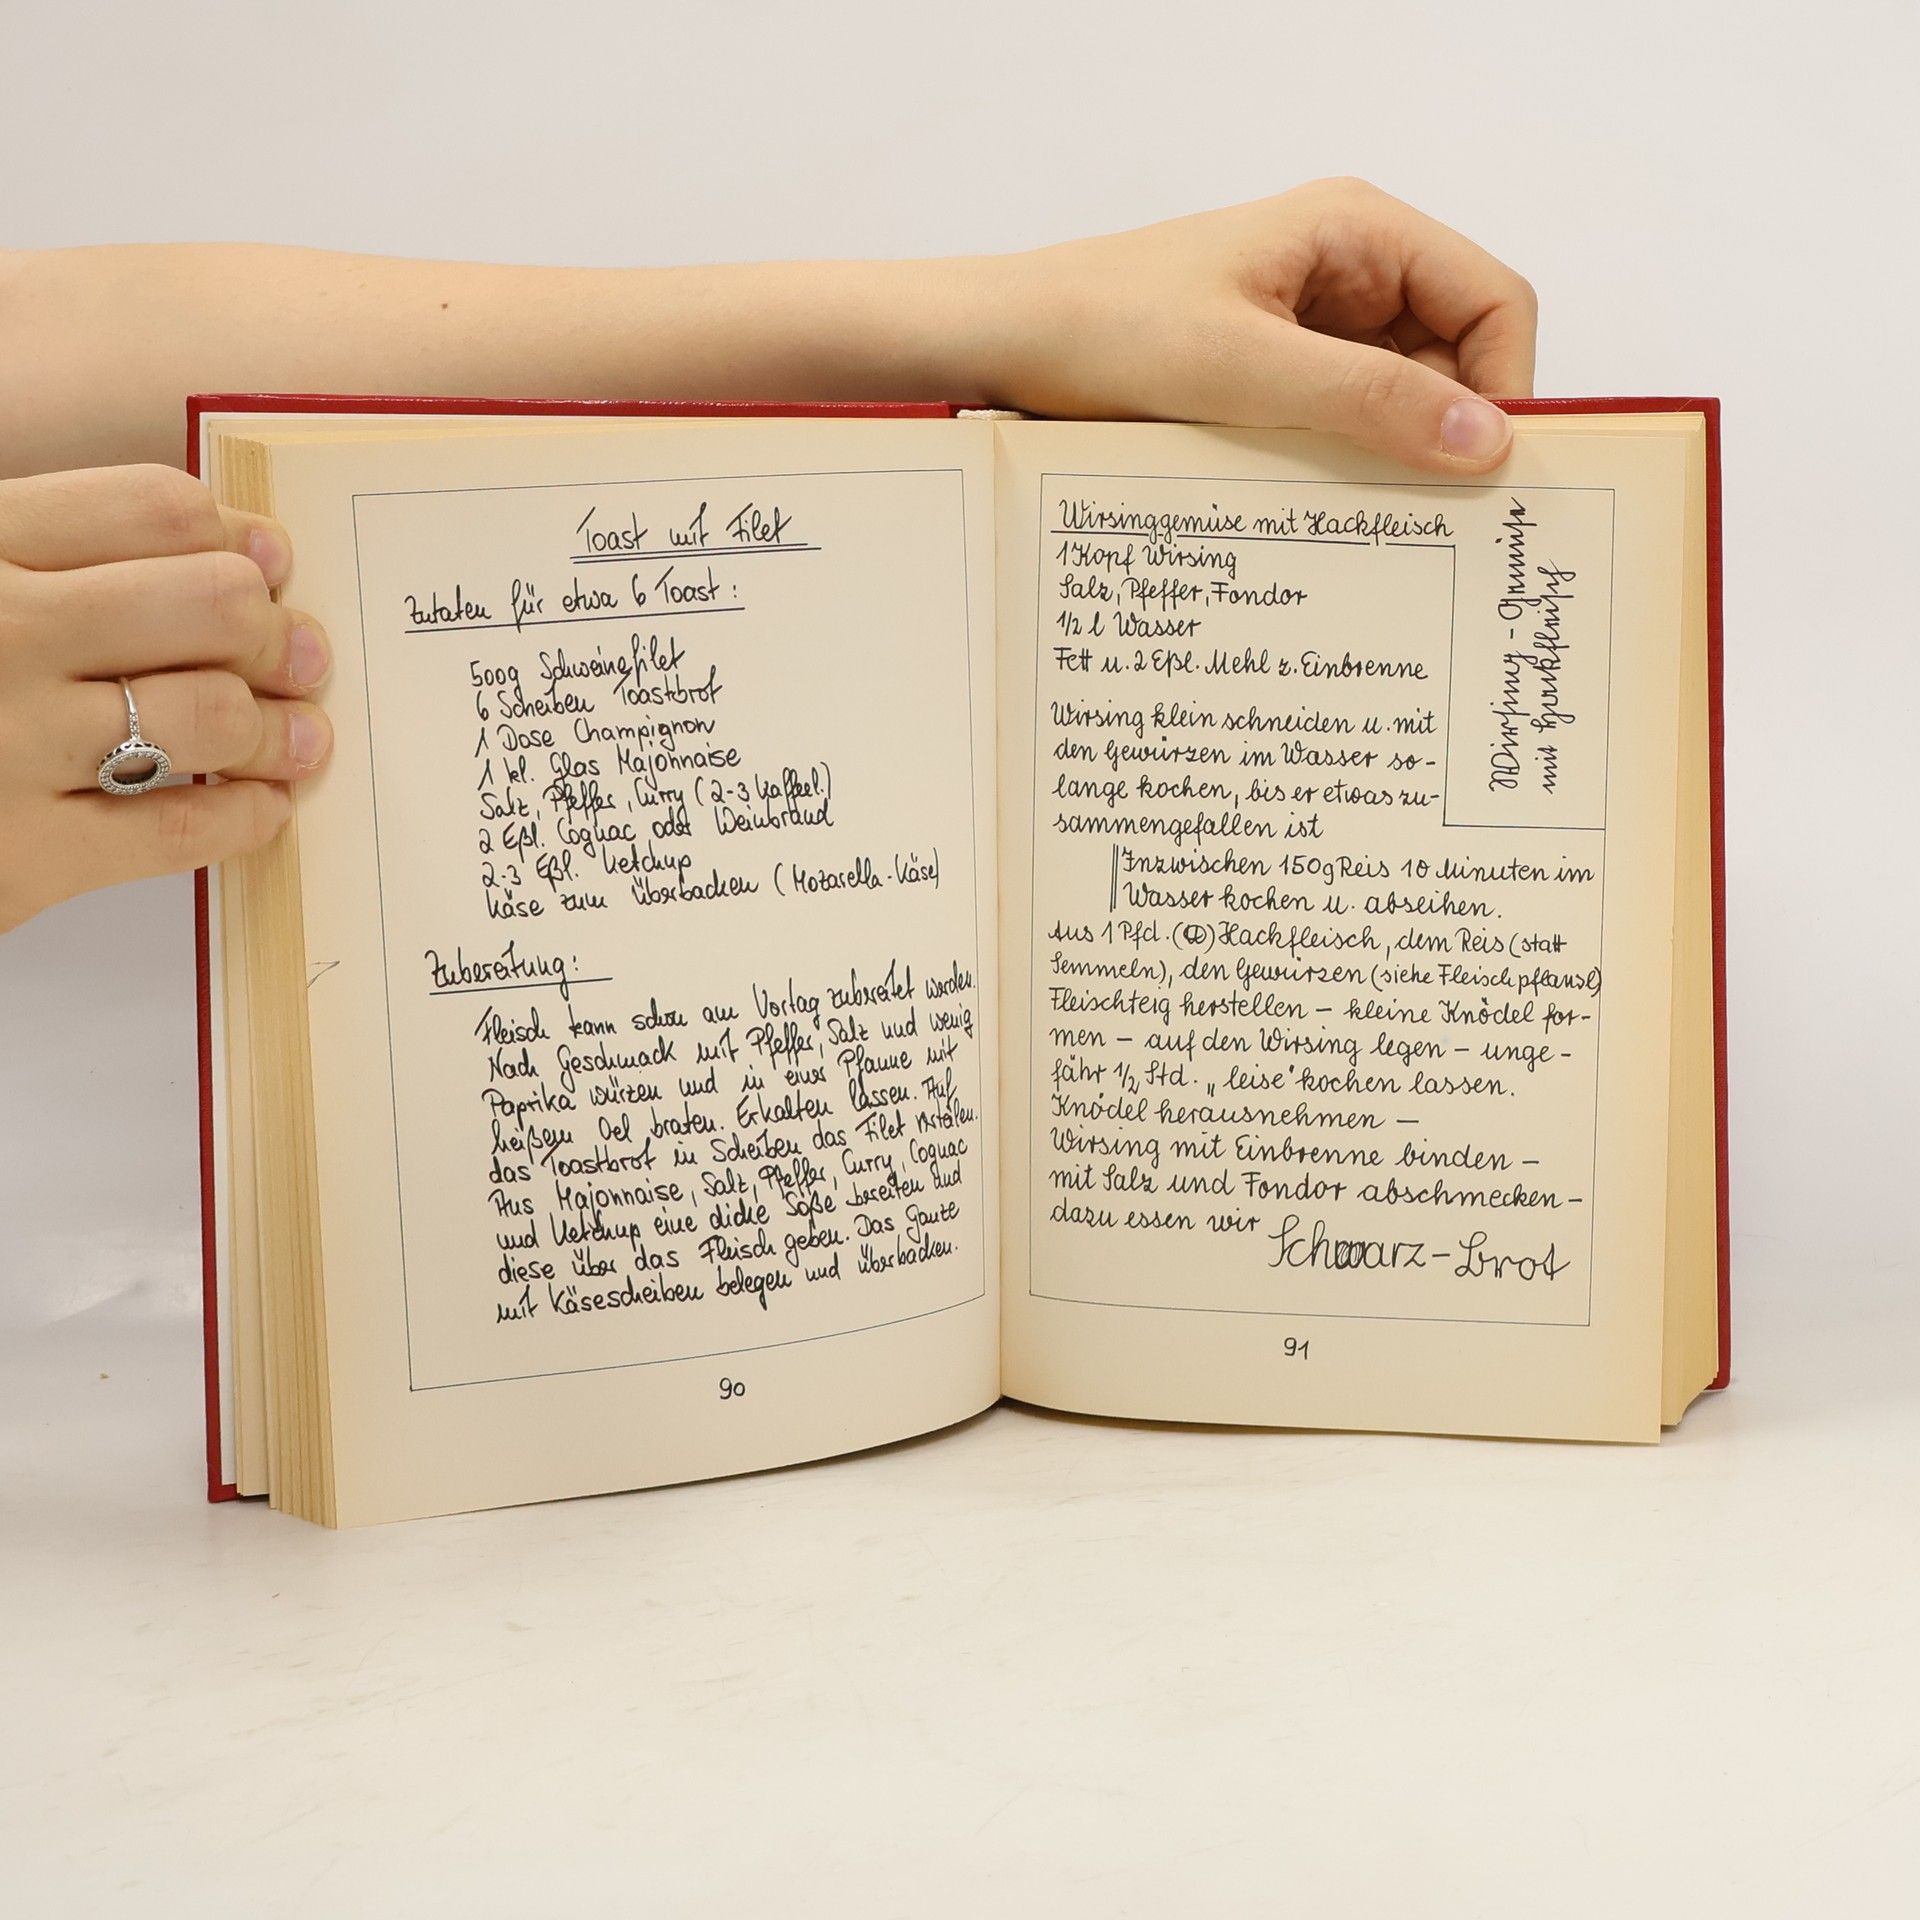 Toast mit Filet
Zutaten für etwa 6 Toast:
500g Schweinefilet
6 Scheiben Toastbrot
1 Dose Champignon
1 kl. Glas Majonnaise
Salz, Pfeffer, Curry (2-3 Kaffeel.)
2 Eßl. Cognac oder Weinbrand
2-3 Eßl. Ketchup
Käse zum Überbacken (Mozarella-Käse)
Zubereitung:
Fleisch kann schon am Vortag zubereitet werden.
Nach Geschmack mit Pfeffer, Salz und wenig
Paprika würzen und in einer Pfanne mit
heißem Oel braten. Erkalten lassen. Auf
das Toastbrot in Scheiben das Filet verteilen.
Aus Majonnaise, Salz, Pfeffer, Curry, Cognac
und Ketchup eine dicke Soße bereiten und
diese über das Fleisch geben. Das Ganze
mit Käsescheiben belegen und überbacken.
90
Wirsinggemüse mit Hackfleisch
1 Kopf Wirsing
Salz, Pfeffer, Fondor
1/2 l Wasser
Fett u. 2 Eßl. Mehl z. Einbrenne
Wirsing-Gemüse
mit Hackfleisch
Wirsing klein schneiden u. mit
den Gewürzen im Wasser so-
lange kochen, bis er etwas zu-
sammengefallen ist
Inzwischen 150g Reis 10 Minuten im
Wasser kochen u. abseihen.
Aus 1 Pfd. Hackfleisch, dem Reis (statt
Semmeln), den Gewürzen (siehe Fleischpflanzl)
Fleischteig herstellen – kleine Knödel for-
men – auf den Wirsing legen – unge-
fähr 1/2 Std. „leise" kochen lassen.
Knödel herausnehmen –
Wirsing mit Einbrenne binden –
mit Salz und Fondor abschmecken –
dazu essen wir Schwarz-Brot
91